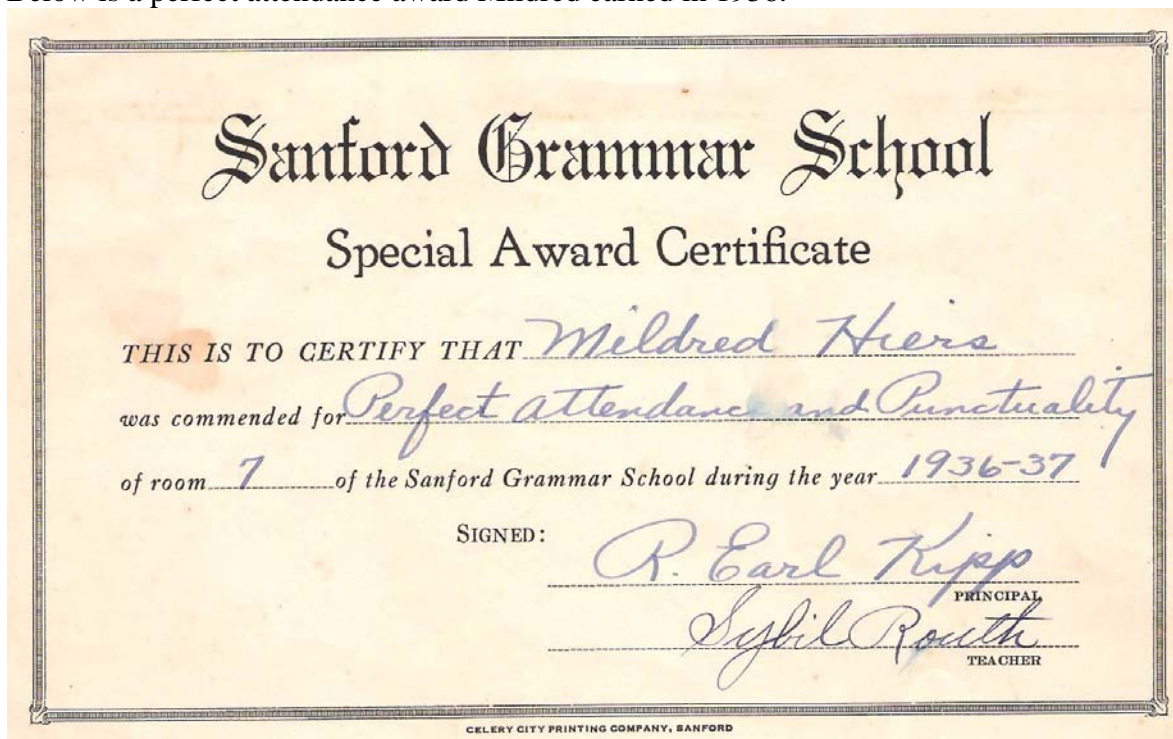 Below is a perfect attendance award Mildred earned in 1936.
Sanford Grammar School
Special Award Certificate
THIS IS TO CERTIFY THAT Mildred Hiers
was commended for Perfect Attendance and Punctuality
of room 7 of the Sanford Grammar School during the year 1936-37
SIGNED:
R. Earl Kipp
PRINCIPAL
Sybil Routh
TEACHER
CELERY CITY PRINTING COMPANY, SANFORD